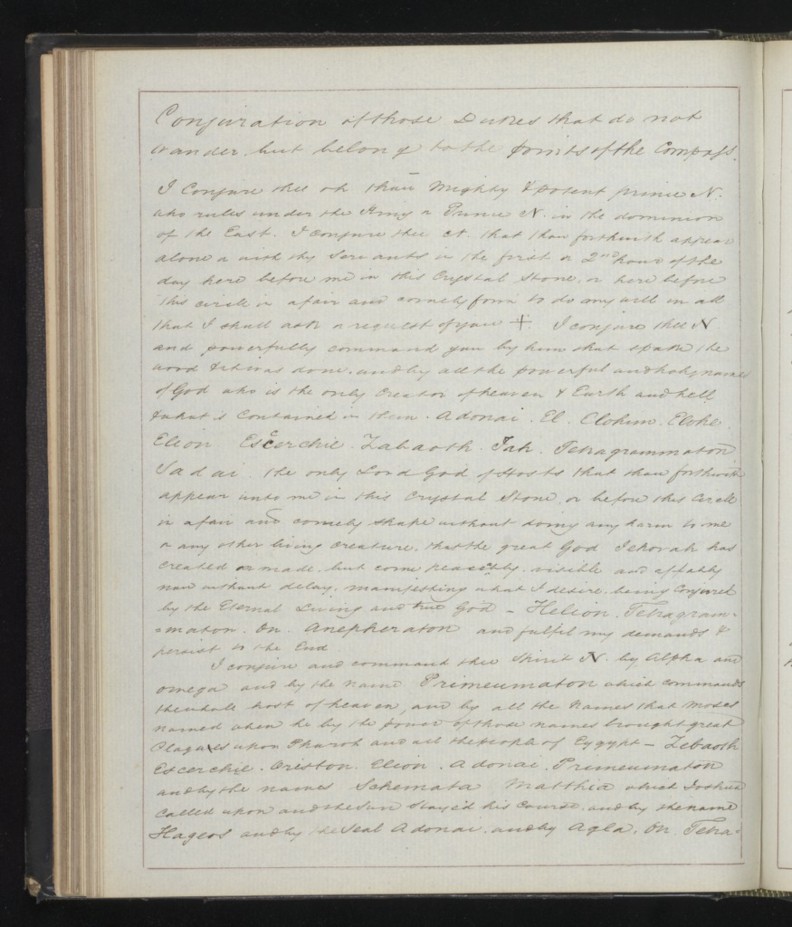 Conjuration of those Dukes that do not
wander but belong to the points of the Compass.
I Conjure thee oh thou Mighty & Potent prince N.
who rules under the King or Prince N. in the dominion
of the East. I conjure thee N. that thou forthwith appear
alone or with thy Servants in the first or 2nd hour of the
day here before me in this Crystal Stone, or here before
this circle in a fair and comely form to do my will in all
that I shall ask or request of you + I conjure thee N
and powerfully command you by him that spake the
word & it was done, and by all the powerful and holy names
of God who is the only Creator of heaven & Earth and hell
& what is Contained in them. Adonai. El. Elohim. Elohe.
Elion Escerchie. Zabaoth. Jah. Tetragrammaton
Sadai. the only Lord God of Hosts that thou forthwith
appear unto me in this Crystal Stone, or before this Circle
in a fair and comely shape without doing any harm to me
or any other living Creature, that the great God Jehovah has
created or made, but come peaceably, visible and affably
now without delay, manifesting what I desire, being Conjured
by the Eternal Living and true God – Helion. Tetragram-
=maton. On. Anepheraton and fulfil my demands &
persist to the End
I conjure and command thee Spirit N. by Alpha and
omega and by the name Primeumaton which commands
the whole host of heaven, and by all the Names that Moses
named when he by the power of those names brought great
Plagues upon Pharoh and all the people of Eygypt – Zebaoth
Escerchie. Oriston. Elion. Adonai. Primeumaton
and by the names Schemata Matthia which Joshua
Called upon and the Sun Stayed his Course, and by the name
Hageos and by the Seal Adonai, and by Agla, On. Tetra-